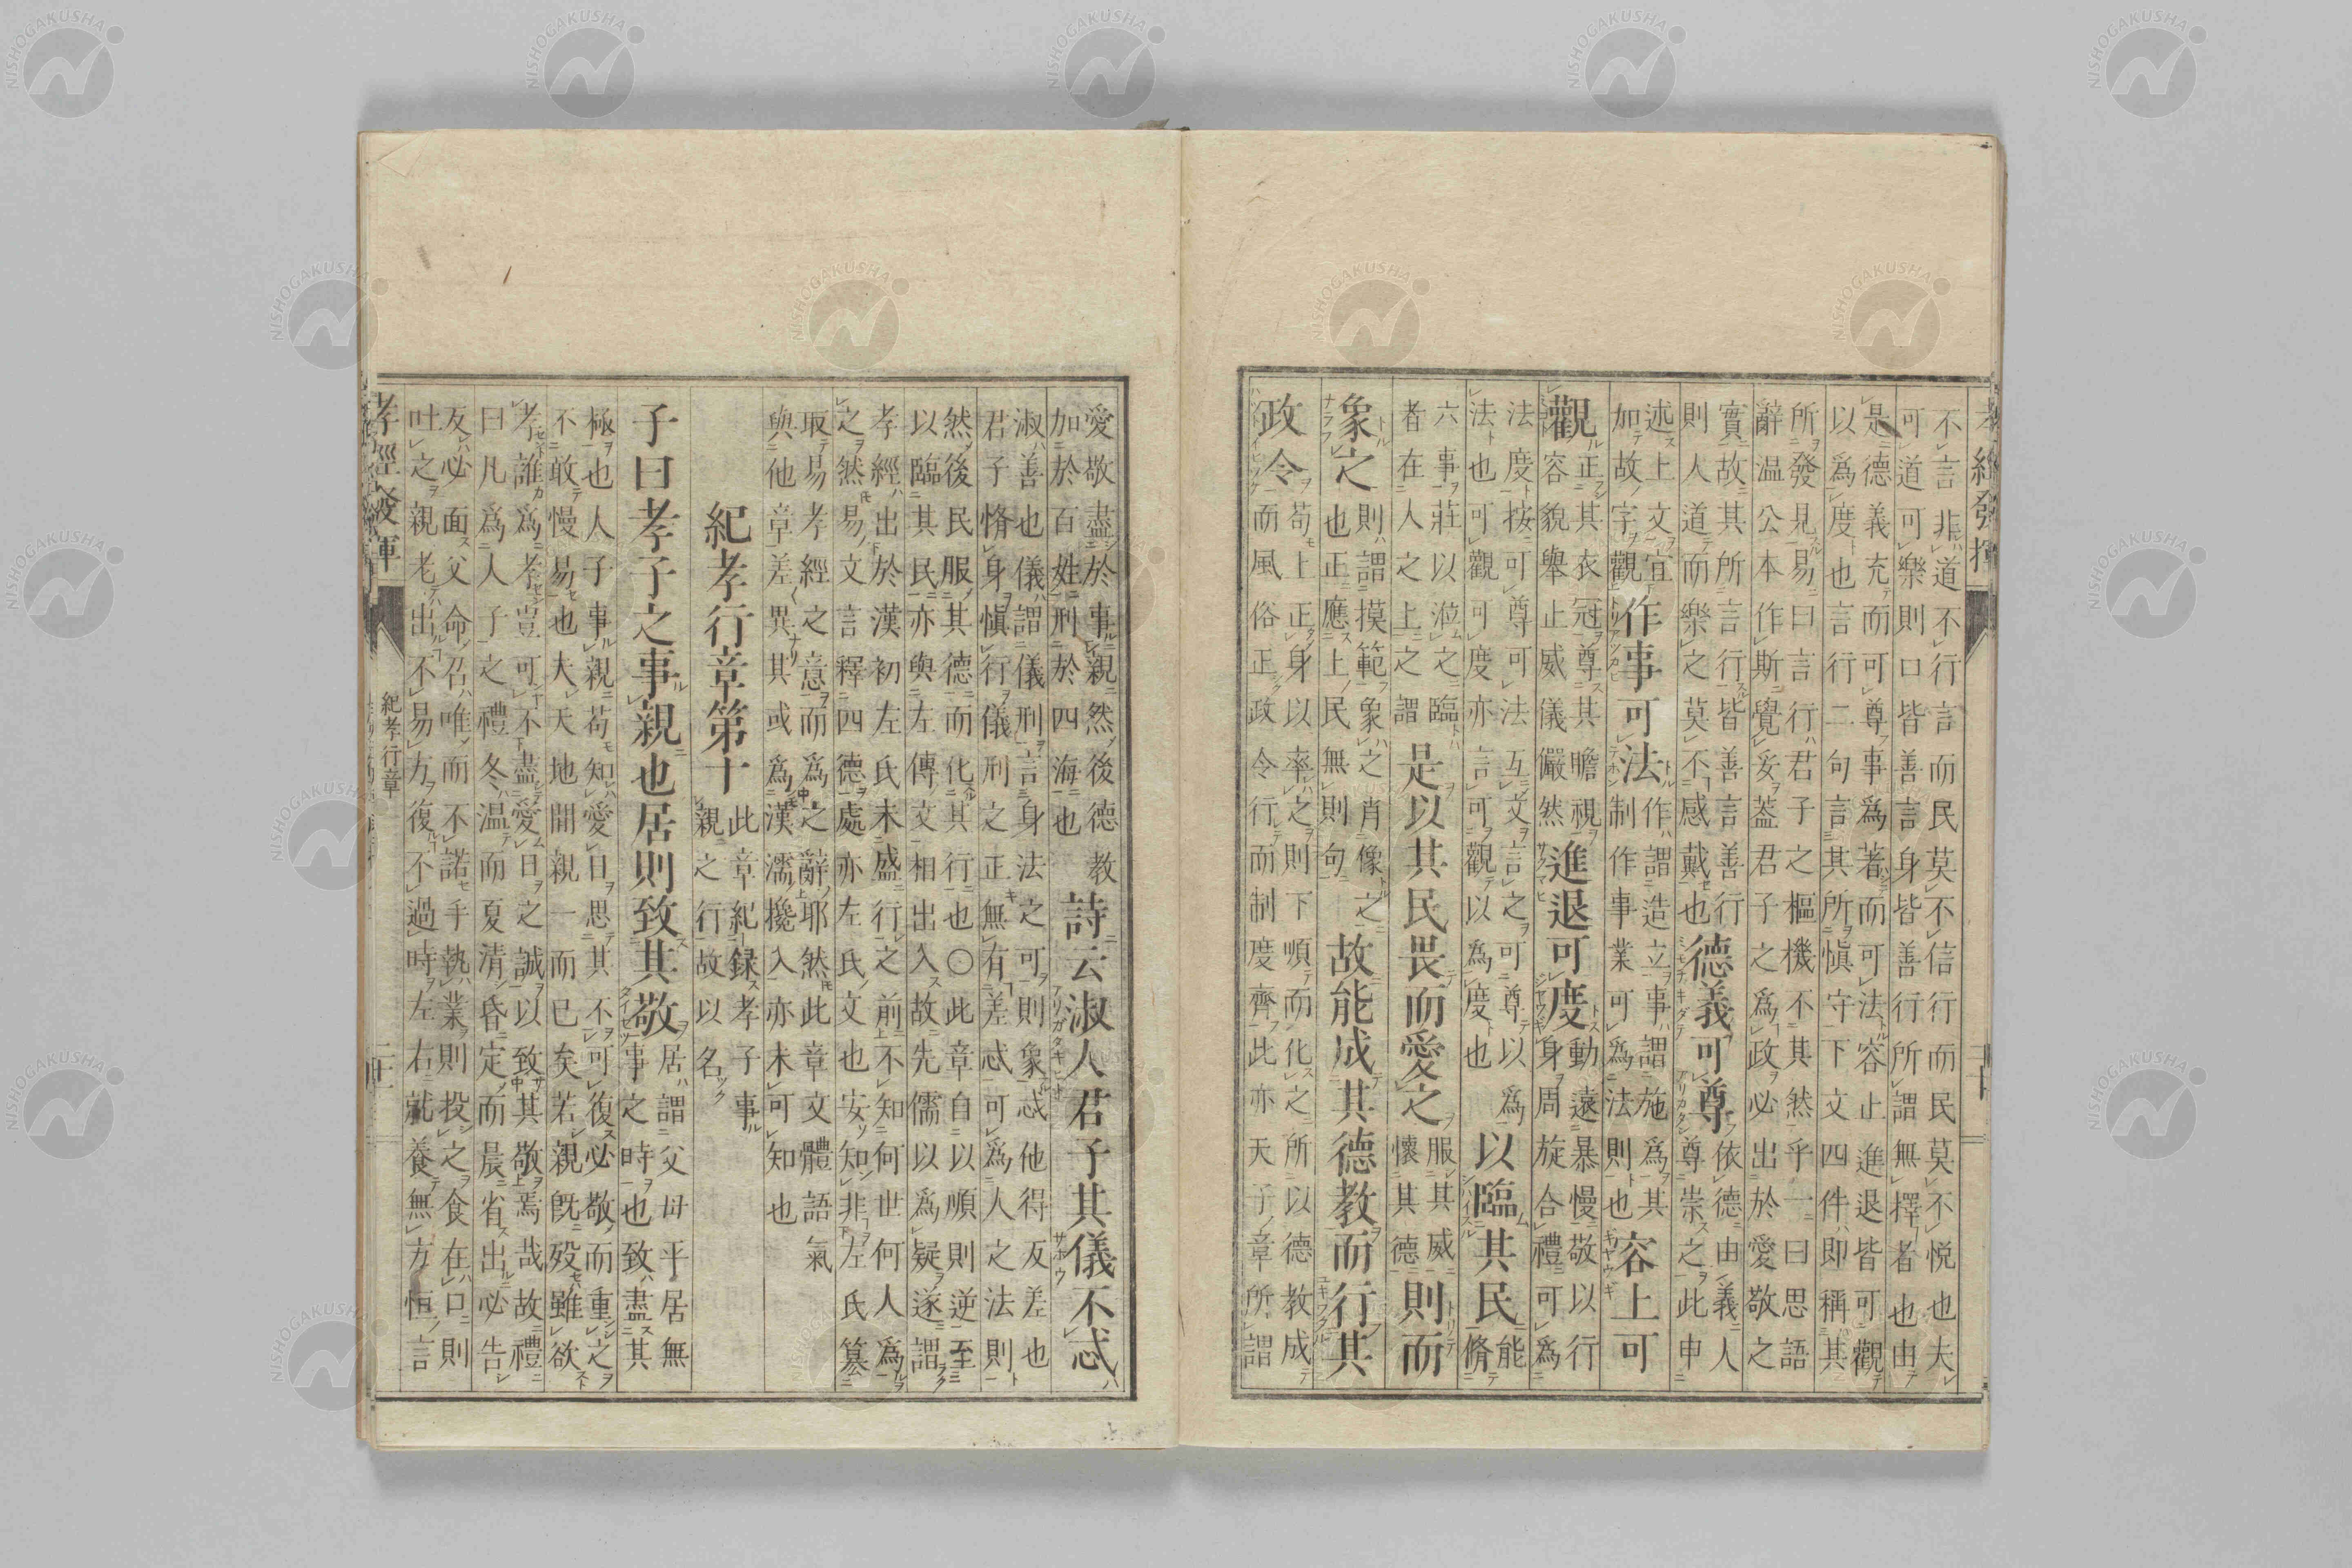 孝經發揮
二十
不言非道不行言而民莫不信行而民莫不悦也夫
可道可樂則口皆善言身皆善行所謂無擇者也由
是德義充而可尊事為著而可法容止進退皆可觀
以為度也言行二句言其所慎守下文四件即稱其
所發見易曰言行君子之樞機不其然乎一曰思語
辭温公本作斯覺妄蓋君子之為政必出於愛敬之
實故其所言行皆善言善行
則人道而樂之莫不感戴也
德義可尊
依德由義人
尊崇之此申
述上文宜
加故字觀
作事可法
作謂造立事謂施為其
制作事業可為法則也
容止可
觀
正其衣冠尊其瞻視
容貌舉止威儀儼然
進退可度
動遠暴慢敬以行
身周旋合禮可為
法度按可尊可法互文言之可尊以為
法也可觀可度亦言可觀以為度也
以臨其民
能
脩
六事莊以涖之臨
者在人之上之謂
是以其民畏而愛之
服其威
懷其德
則而
象之
則謂摸範象之肖像之
也正應上民無則句
故能成其德教而行其
政令
苟上正身以率之則下順而化之所以德教成
而風俗正政令行而制度齊此亦天子章所謂
愛敬盡於事親然後德教
加於百姓刑於四海也
詩云淑人君子其儀不忒
淑善也儀謂儀刑言身法之可則象忒他得反差也
君子脩身慎行儀刑之正無有差忒可為人之法則
然後民服其德而化其行也〇此章自以順則逆至
以臨其民亦與左傳文相出入故先儒以為疑遂謂
孝經出於漢初左氏未盛行之前不知何世何人為
之然易文言釋四德處亦左氏文也安知非左氏纂
取易孝經之意而為之辭耶然此章文體語氣
與他章差異其或為漢濡攙入亦未可知也
紀孝行章第十
此章紀録孝子事
親之行故以名
子曰孝子之事親也居則致其敬
居謂父母平居無
事之時也致盡其
極也人子事親苟知愛日思其不可復必敬而重之
不敢慢易也大天地間親一而已矣若親既殁雖欲
孝誰為孝豈可不盡愛日之誠以致其敬焉哉故禮
曰凡為人子之禮冬温而夏清昏定而晨省出必告
反必面父命召唯而不諾手執業則投之食在口則
吐之親老出不易方復不過時左右就養無方恒言
孝經發揮
紀孝行章